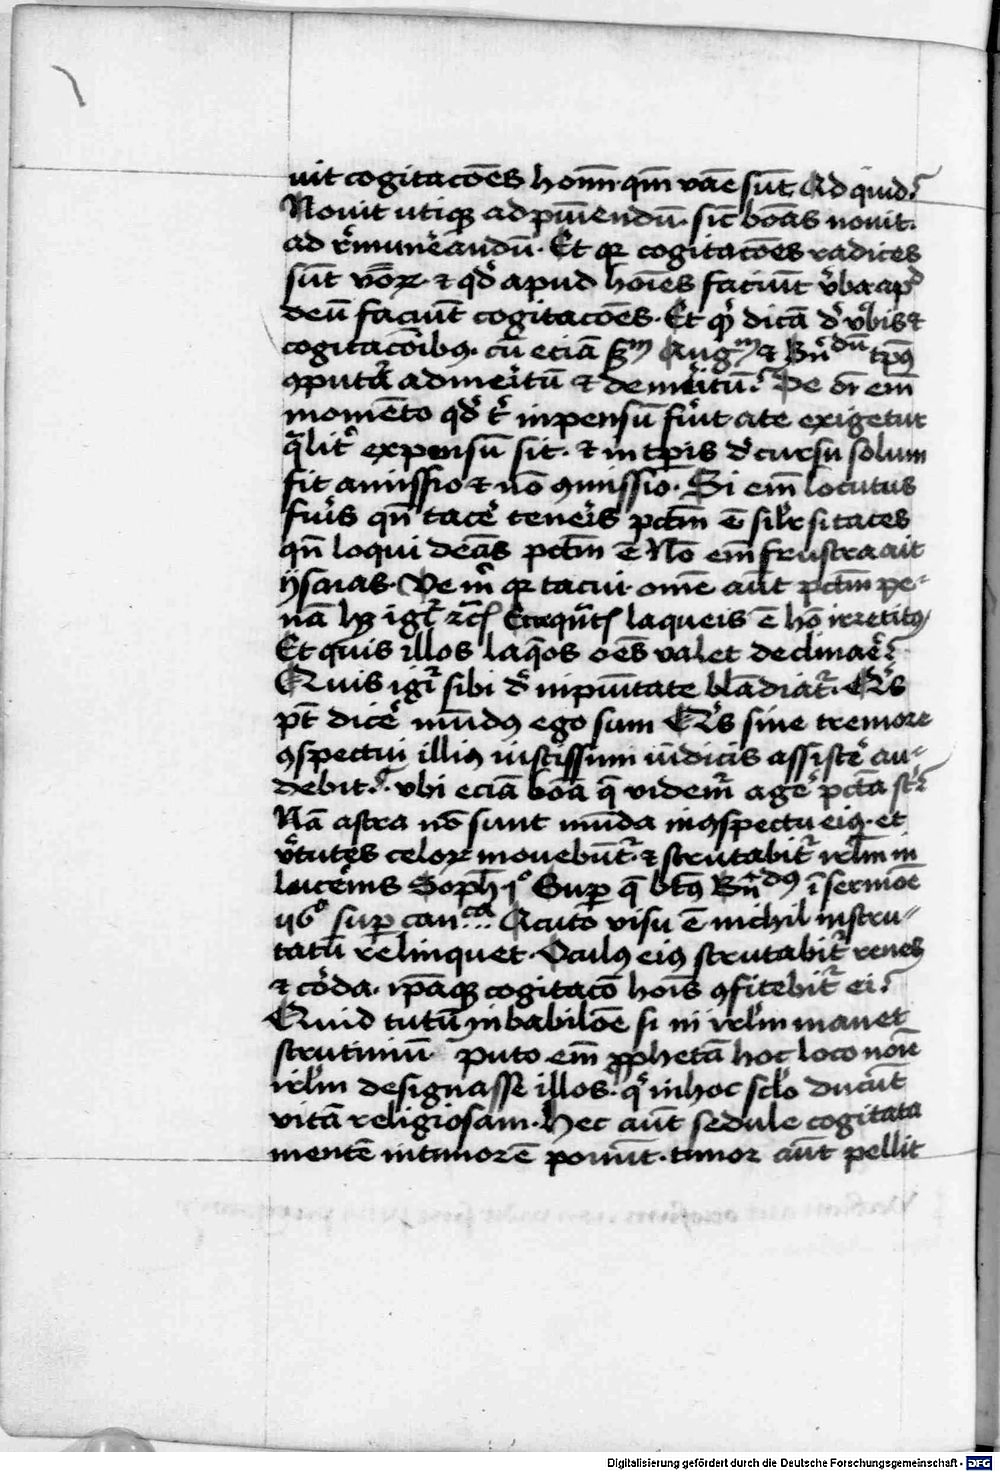 uit cogitacōes homī qm̄ vāe sūt Ad quid?
Nouit utiqꝫ ad pūiendū. sic̄ boas nouit.
ad r̄munēandū. Et qꝛ cogitacōes radices
sūt v̄boꝝ. ⁊ qd̓ apud hoīes faciūt v̓ba apd̓
deū faciūt cogitacōes. Et qͥ dicā d̓ v̓bis ⁊
cogitacōibꝫ. cū eciā sm̄ Augᵐ ⁊ Bn̄dū tp̄ꝰ
ꝯputāt̓ ad mēitū ⁊ demēitū? De oī em̄
momēto qd̓ t̓ inpensū fūit a te exigetur
qͣlit̓ expensū sit. ⁊ in tp̄is d̓cursu solum
fit amissio ⁊ nō ꝯmissio. Si em̄ locutus
fūis qn̄ tacē tenēis pctm̄ ē silr̄ si taces
qn̄ loqui deās pctm̄ ē Nō em̄ frustra ait
ysaias. Ve m̄ qꝛ tacui. om̄e aūt pctm̄ pe-
nā hꝫ igit̓ laqueis ē hō irretitꝰ
Et quis illos laq̄os oēs valet declināe?
Quis igit̓ sibi d̓ inpūitate blādiat̓. Qͥs
pt̄ dicē mūdꝰ ego sum Qͥs sine tremore
ꝯspectui illiꝰ iustissimi iudicis assistē au-
debit? vbi eciā bōa q̄ videm̄ agē pctā st̄?
Nā astra nō sunt mūda in ꝯspectu eiꝰ. et
v̓tutes celoꝝ mouebūt̓. ⁊ scrutabit̓ irlm̄ in
lucēnis Soph̄ 1° Suꝑ q̄ bt̄ꝰ Bn̄dꝰ ī sermōe
suꝑ can Acuto visu ē nichil inscru-
tatū relinquet. Oculꝰ eiꝰ scrutabit̓ renes
⁊ cōda. ip̄aqꝫ cogitacō hoīs ꝯfitebit̓ ei?
Quid tutū in babilōe si in irlm̄ manet
scrutiniū. puto em̄ ꝓphetā hoc loco noīe
irlm̄ designasse illos. qͥ in hoc sclo̓ ducūt
vitā religiosam. Hec aūt sedule cogitata
mentē in timorē ponūt. timor aūt pellit
Digitalisierung gefördert durch die Deutsche Forschungsgemeinschaft - DFG